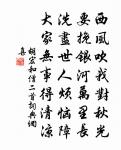 西風吹我對秋光
要挽銀河萬里長
洗盡世人煩惱障
大家無事得清涼
胡宏和僧二首詞典網